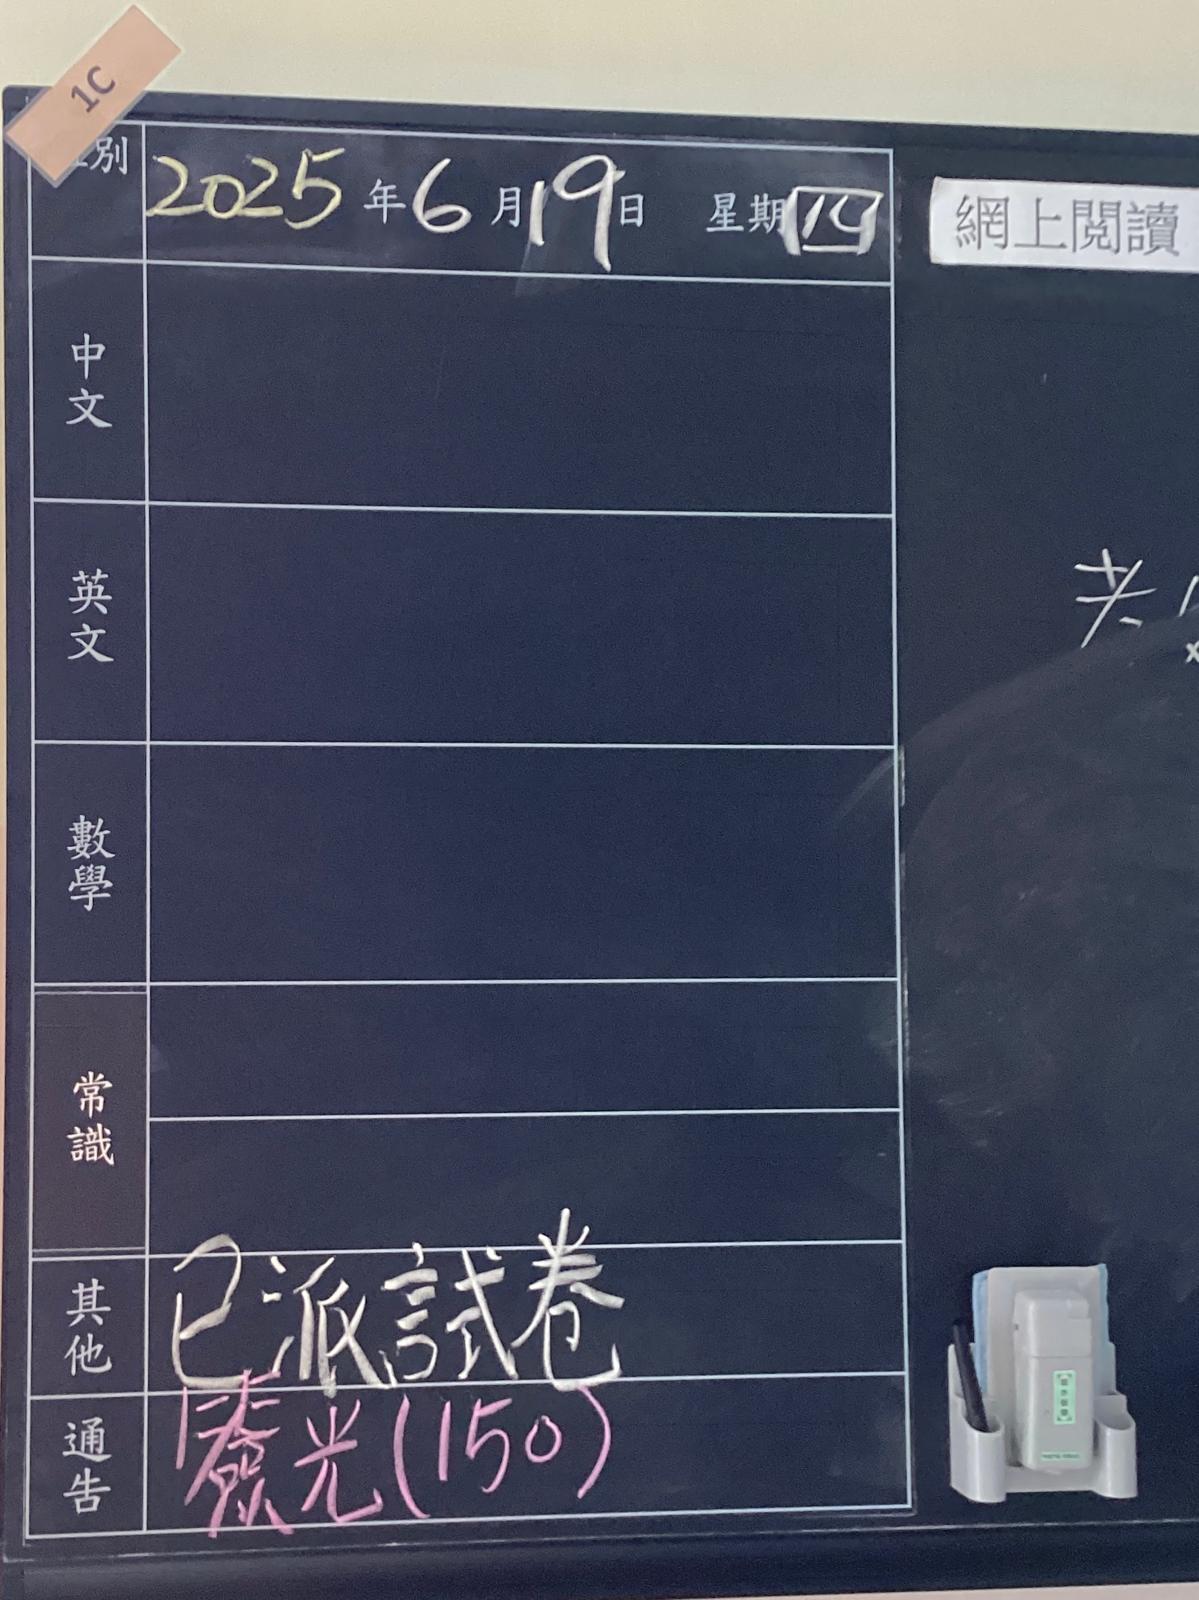 1C
別 2025年6月19日 星期四
網上閱讀
中文
英文
老
數學
常識
其他 已派試卷
通告 光(150)